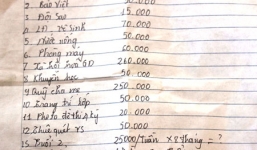 2. Bảo Việt
3. Đội Sao 15.000
4. vệ sinh 70.000
5. Nước uống 50.000
6. Phòng máy 60.000
7. Xã hội hoá GD 260.000
8 Khuyến học 50.000
9 Quỹ cha mẹ 250.000
10 trang trí lớp 50.000
11. Phô tô đề thi 20.000
12. 50.000
15. 2 25000/tuần x 8 tháng = ?